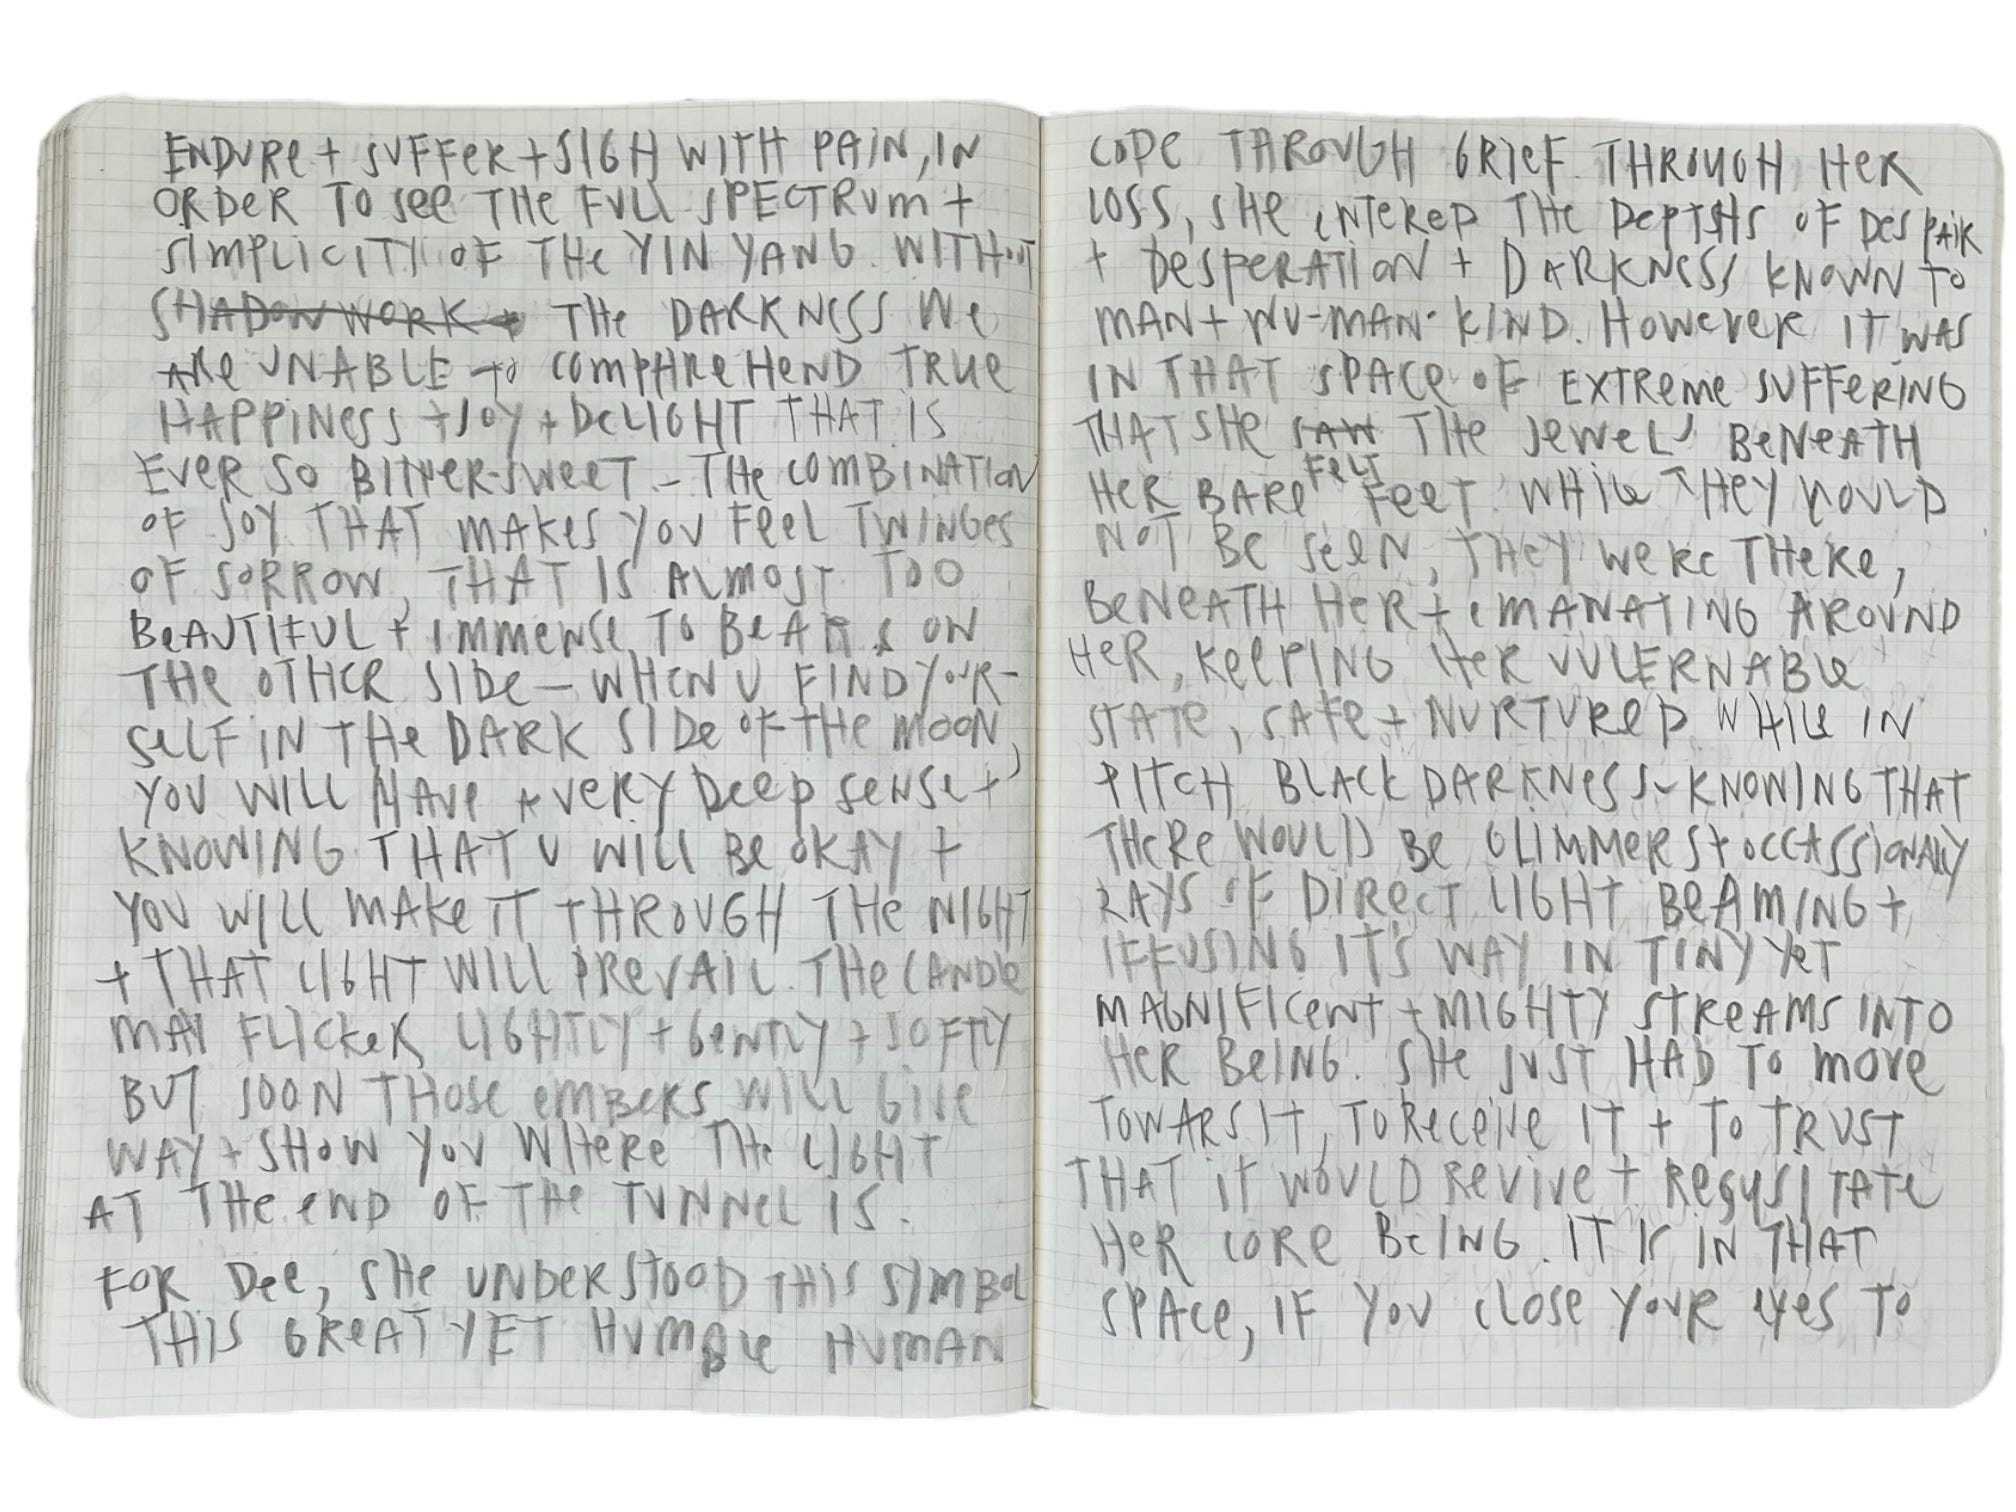 ENDURE + SUFFER + SIGH WITH PAIN, IN
ORDER TO SEE THE FULL SPECTRUM +
SIMPLICITY OF THE YIN YANG. WITHOUT
SHADOW WORK + THE DARKNESS WE
ARE UNABLE TO COMPHREHEND TRUE
HAPPINESS + JOY + DELIGHT THAT IS
EVER SO BITTER-SWEET - THE COMBINATION
OF JOY THAT MAKES YOU FEEL TWINGES
OF SORROW, THAT IS ALMOST TOO
BEAUTIFUL + IMMENSE TO BEAR & ON
THE OTHER SIDE - WHEN U FIND YOUR-
SELF IN THE DARK SIDE OF THE MOON,
YOU WILL HAVE A VERY DEEP SENSE +
KNOWING THAT U WILL BE OKAY +
YOU WILL MAKE IT THROUGH THE NIGHT
+ THAT LIGHT WILL PREVAIL. THE CANDLE
MAY FLICKER LIGHTLY + GENTLY + SOFTLY
BUT SOON THOSE EMBERS WILL GIVE
WAY + SHOW YOU WHERE THE LIGHT
AT THE END OF THE TUNNEL IS.
FOR DEE, SHE UNDERSTOOD THIS SYMBOL
THIS GREAT YET HUMBLE HUMAN
CODE THROUGH GRIEF. THROUGH HER
LOSS, SHE ENTERED THE DEPTSHS OF DESPAIR
+ DESPERATION + DARKNESS KNOWN TO
MAN + WU-MAN-KIND. HOWEVER IT WAS
IN THAT SPACE OF EXTREME SUFFERING
THAT SHE SAW THE JEWELS BENEATH
FELT
HER BARE FEET. WHILE THEY WOULD
NOT BE SEEN, THEY WERE THERE,
BENEATH HER + EMANATING AROUND
HER, KEEPING HER VULERNABLE
STATE, SAFE + NURTURED WHILE IN
PITCH BLACK DARKNESS - KNOWING THAT
THERE WOULD BE GLIMMERS + OCCASSIONALLY
RAYS OF DIRECT LIGHT BEAMING +
IFFUSING IT'S WAY IN TINY YET
MAGNIFICENT + MIGHTY STREAMS INTO
HER BEING. SHE JUST HAD TO MOVE
TOWARS IT, TO RECEIVE IT + TO TRUST
THAT IT WOULD REVIVE + REGUSITATE
HER CORE BEING. IT IS IN THAT
SPACE, IF YOU CLOSE YOUR EYES TO